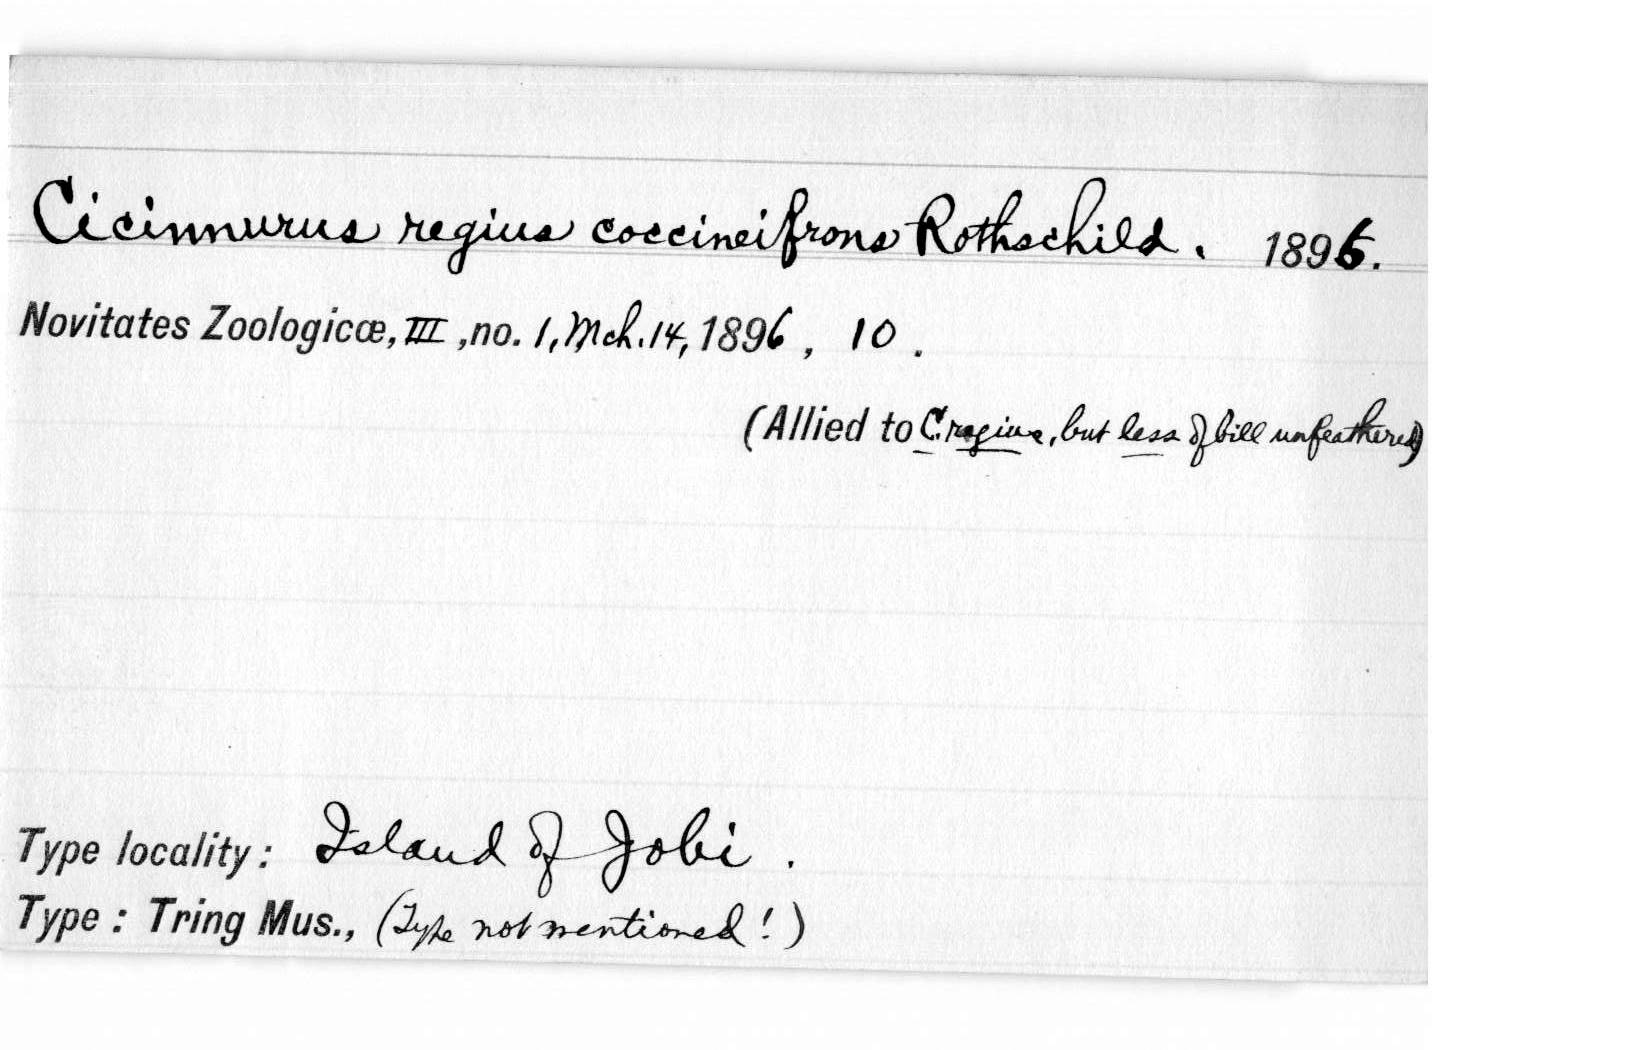 Cicinnurus regius coccineifrons Rothschild. 1896.
Novitates Zoologicæ, III, no. 1, Mch. 14, 1896, 10.
(Allied to C. regius, but less of bill unfeathered)
Type locality: Island of Jobi.
Type: Tring Mus., (Type not mentioned!)